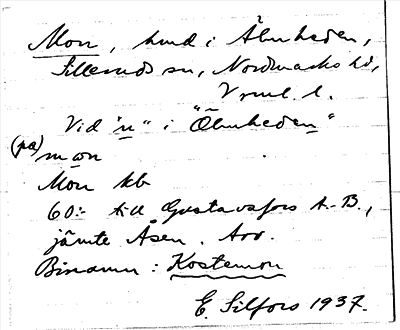 Mon, hmd i Älmheden,
Silleruds sn, Nordmarks hd,
Vrml. l.
Vid "n" i "Älmheden"
(på) mon
Mon kb
60:- till Gustavsfors A.-B.,
jämte Åsen. Arr.
Binamn: Kostemon
E. Silfors 1937.